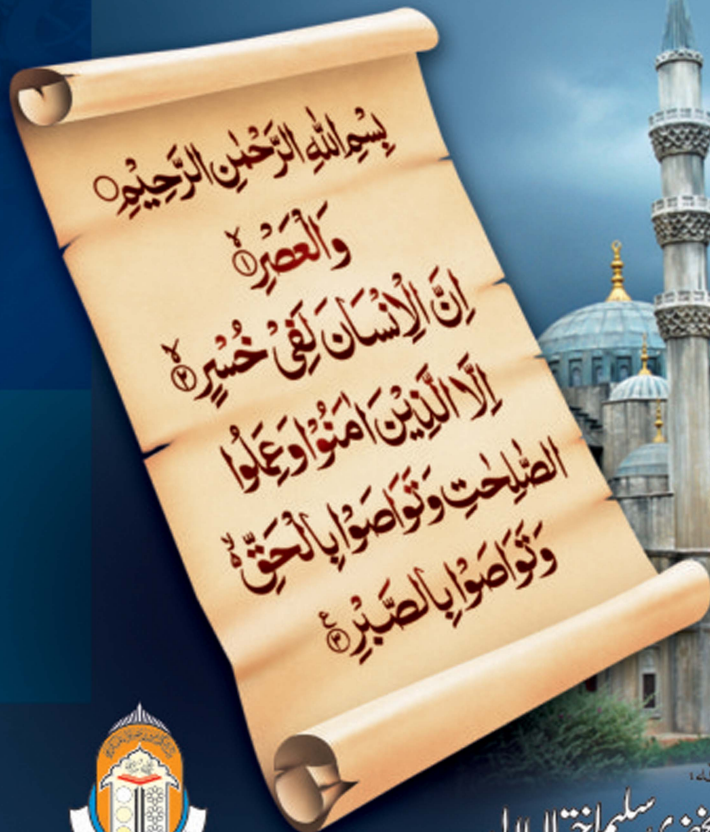 بِسْمِ اللهِ الرَّحْمٰنِ الرَّحِيْمِ
وَالْعَصْرِۙ ۱
اِنَّ الْاِنْسَانَ لَفِیْ خُسْرٍۙ ۲
اِلَّا الَّذِیْنَ اٰمَنُوْا وَعَمِلُوا
الصّٰلِحٰتِ وَتَوَاصَوْا بِالْحَقِّ
وَتَوَاصَوْا بِالصَّبْرِ ۳ ع